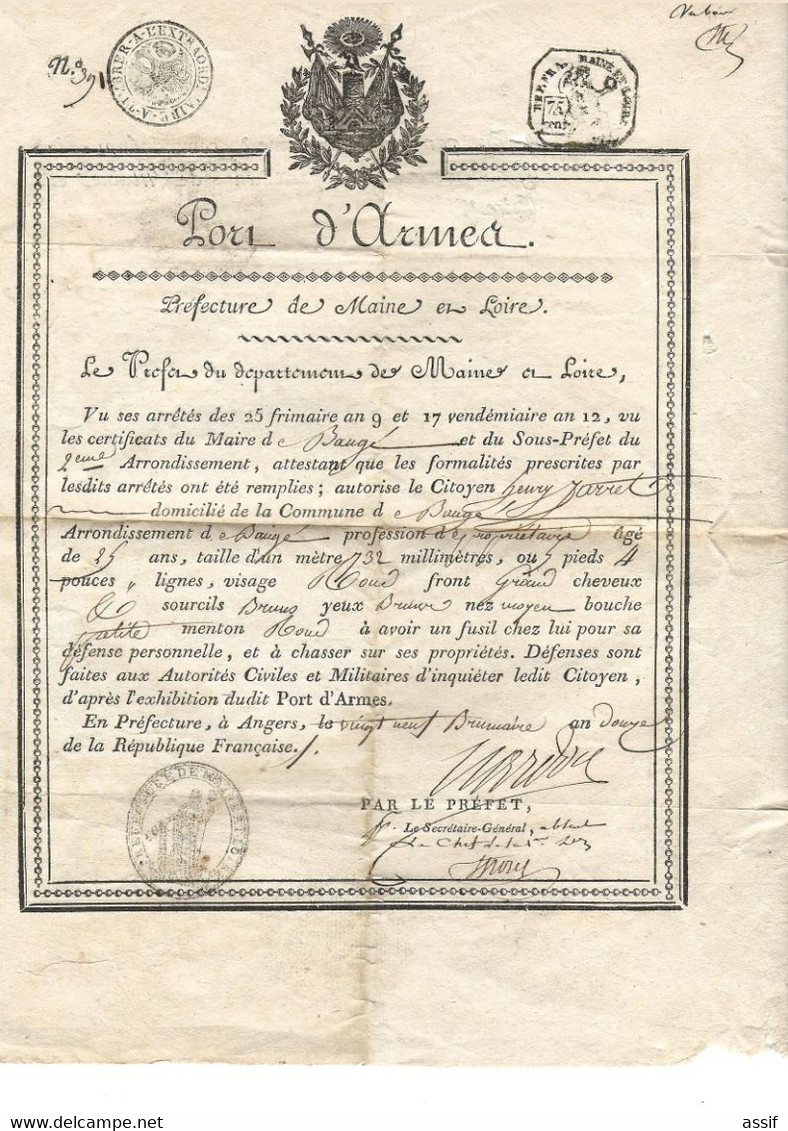 N.º 391
A-TIMBRER-A-L'EXTRAORDINAIRE
REP. FRA. MAINE ET LOIRE
75
cent
Port d'Armes.
Préfecture de Maine et Loire.
Le Préfet du département de Maine et Loire,
Vu ses arrêtés des 25 frimaire an 9 et 17 vendémiaire an 12, vu
les certificats du Maire de Baugé et du Sous-Préfet du
2eme Arrondissement, attestant que les formalités prescrites par
lesdits arrêtés ont été remplies; autorise le Citoyen henry Jarret
domicilié de la Commune de Baugé
Arrondissement de Baugé profession de propriétaire âgé
de 25 ans, taille d'un mètre 732 millimètres, ou 5 pieds 4
pouces " lignes, visage Rond front Grand cheveux
& sourcils Bruns yeux Bruns nez moyen bouche
petite menton Rond à avoir un fusil chez lui pour sa
défense personnelle, et à chasser sur ses propriétés. Défenses sont
faites aux Autorités Civiles et Militaires d'inquiéter ledit Citoyen,
d'après l'exhibition dudit Port d'Armes.
En Préfecture, à Angers, le vingt neuf Brumaire an douze
de la République Française.
PAR LE PRÉFET,
Le Secrétaire-Général, absent
Le Chef de la 1re
PREFECTURE DE MAINE ET LOIRE
assif